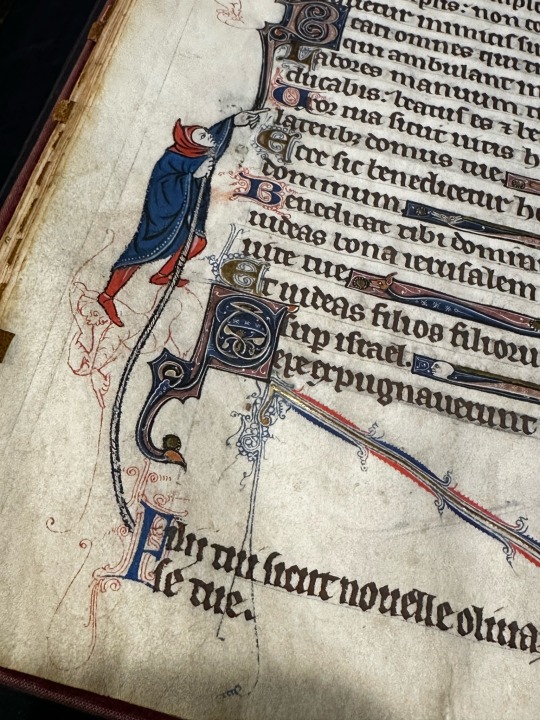 plis: non
inimicis
Beati omnes qui
qui ambulant in
Labores manuum
ducabis: beatus es ⁊
Uxor tua sicut uitis
lateribꝫ domus tue.
Ecce sic benedicetur ho
dominum.
Benedicat tibi domin
uideas bona ierusalem
uite tue.
Et uideas filios filioru
sup israel.
Sepe expugnauerunt
Filii tui sicut nouelle oliua
se tue.